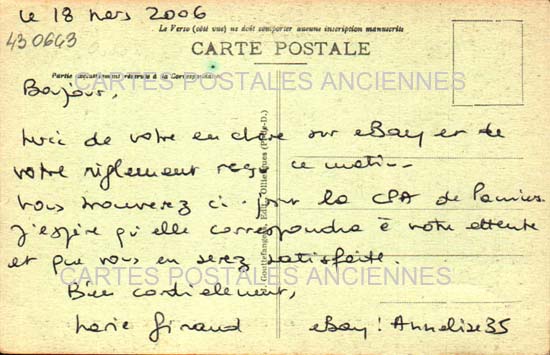 Le 18 Mars 2006
430643
Le Verso (côté vue) ne doit comporter aucune inscription manuscrite
CARTE POSTALE
Partie exclusivement réservée à la Correspondance
CARTES POSTALES ANCIENNES
Bonjour,
Merci de votre enchère sur eBay et de
votre règlement reçu ce matin.
Vous trouverez ci-joint la CPA de Pamiers.
J'espère qu'elle correspondra à votre attente
et que vous en serez satisfaite.
CARTES POSTALES ANCIENNES
Bien cordialement,
Marie Giraud eBay : Annelise35
Gouttefangeas, Edit., Olliergues (P.-de-D.)